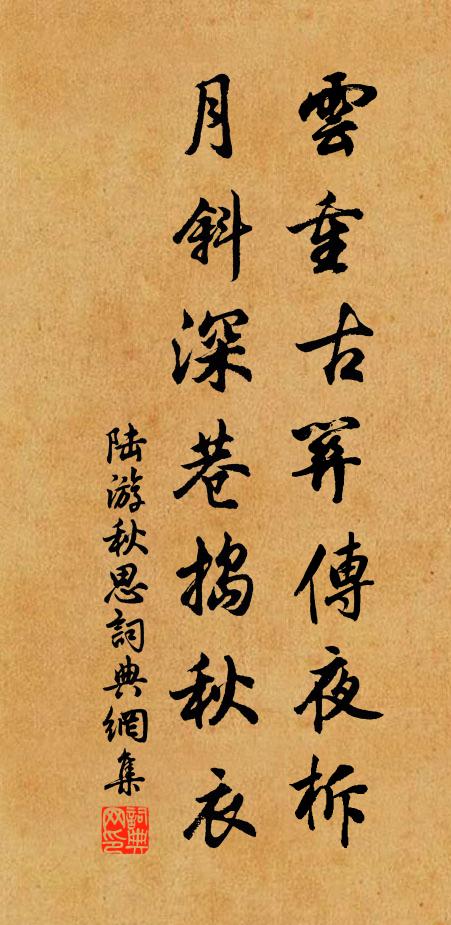 雲重古關傳夜柝
月斜深巷搗秋衣
陸游秋思詞典網集
詞典网印